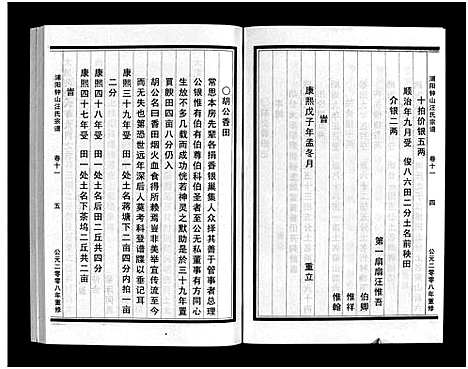 浦阳钟山汪氏宗谱 卷十一 四 公元二零零八年重修
十拍价银五两
顺治年九月受 俊八六田二分土名前秧田
介银二两
第一扇扇汪惟吾
伯卿
惟祥
惟翰
旹
康熙戊子年孟冬月 重立
〇胡公香田
常思本房先辈各捐香银巢集人众择其善于管事者总理
公银惟有伯有伯尊伯科伯圣者至公无私董事有方同心
生放不多几载而成几何若神灵之默助是於三十九年置
買餀田四亩八分仍入
胡公名曰香田烟火血食得所赖焉豈非美举宣传流至今
而无失也第恐世远年深后人莫考科登谱牒以垂记耳
旹
康熙三十九年受 田一处土名蒋塘下二亩四分内拍一亩
二分
康熙四十八年受 田一处土名后田二丘共二亩
康熙四十七年受 田一处土名下茶坞二丘共二亩
浦阳钟山汪氏宗谱 卷十一 五 公元二零零八年重修